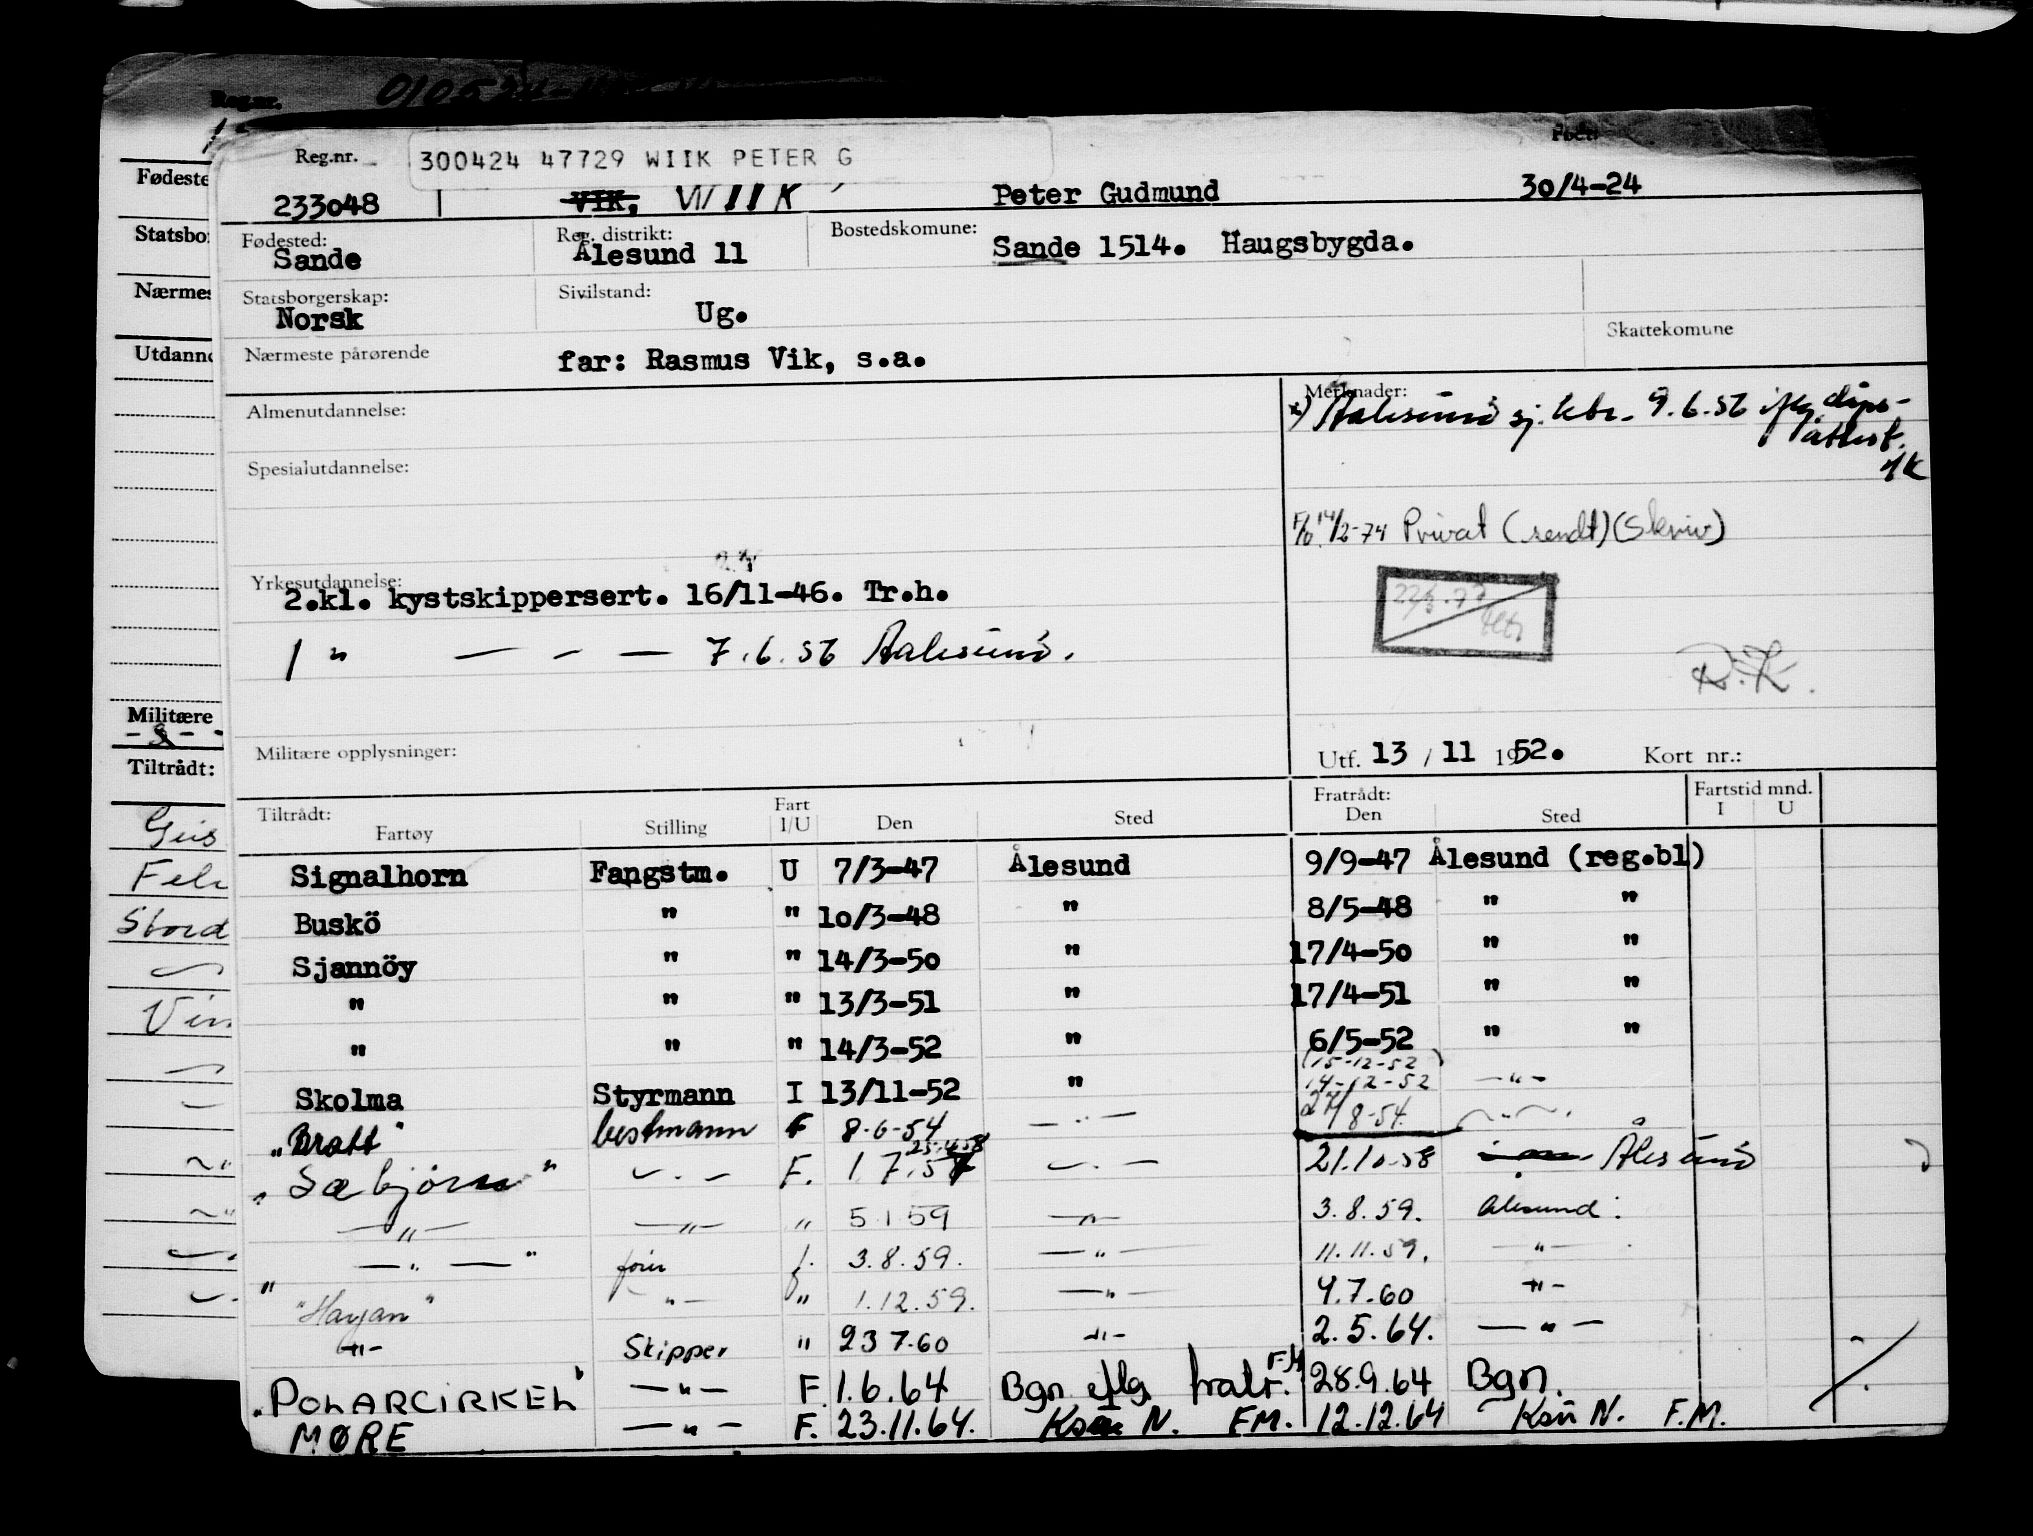 Reg.nr.
Fødeste
Statsbo
Nærmes
Utdann
Militære
Tiltrådt:
Stord
Reg.nr. 300424 47729 WIIK PETER G
233048 VIK, WIIK Peter Gudmund 30/4-24
Fødested: Sande Reg. distrikt: Ålesund 11 Bostedskomune: Sande 1514. Haugsbygda.
Statsborgerskap: Norsk Sivilstand: Ug.
Skattekomune
Nærmeste pårørende far: Rasmus Vik, s.a.
Almenutdannelse: Merknader:
x) Aalesund sj. 9.6.56 iflg dåps-
attest.
Spesialutdannelse:
14/2-74 Privat (sendt) (Skriv)
Yrkesutdannelse:
2.kl. kystskippersert. 16/11-46. Tr.h.
1 " — - — 7.6.56 Aalesund.
R.K.
Militære opplysninger: Utf. 13 / 11 1952. Kort nr.:
Tiltrådt: Fratrådt: Fartstid mnd.
Fartøy Stilling Fart I/U Den Sted Den Sted I U
Signalhorn Fangstm. U 7/3-47 Ålesund 9/9-47 Ålesund (reg.bl)
Buskö " " 10/3-48 " 8/5-48 " "
Sjannöy " " 14/3-50 " 17/4-50 " "
" " " 13/3-51 " 17/4-51 " "
" " " 14/3-52 " 6/5-52 " "
(15-12-52)
Skolma Styrmann I 13/11-52 " 14-12-52 -"-
"Bratt" bestmann F 8-6-54 — - — 27/8-54. -"-
25.4.58
"Sæbjørn" - . - F. 1.7.57 - . - 21.10.58 Ålesund
—"— —"— " 5 1 59 —"— 3.8.59. Ålesund.
" —"— " f. 3.8.59. —"— 11.11.59. —"—
"Havjan" —"— " 1.12.59. —"— 4.7.60 -"-
-"- Skipper " 23 7.60 -"- 2.5.64. —"—
"POLARCIRKEL" —"— F. 1.6.64 Bgn iflg fratr. F.M 28.9.64 Bgn.
MØRE —"— F. 23.11.64. Ksu N. FM. 12.12.64 Ksu N. F.M.